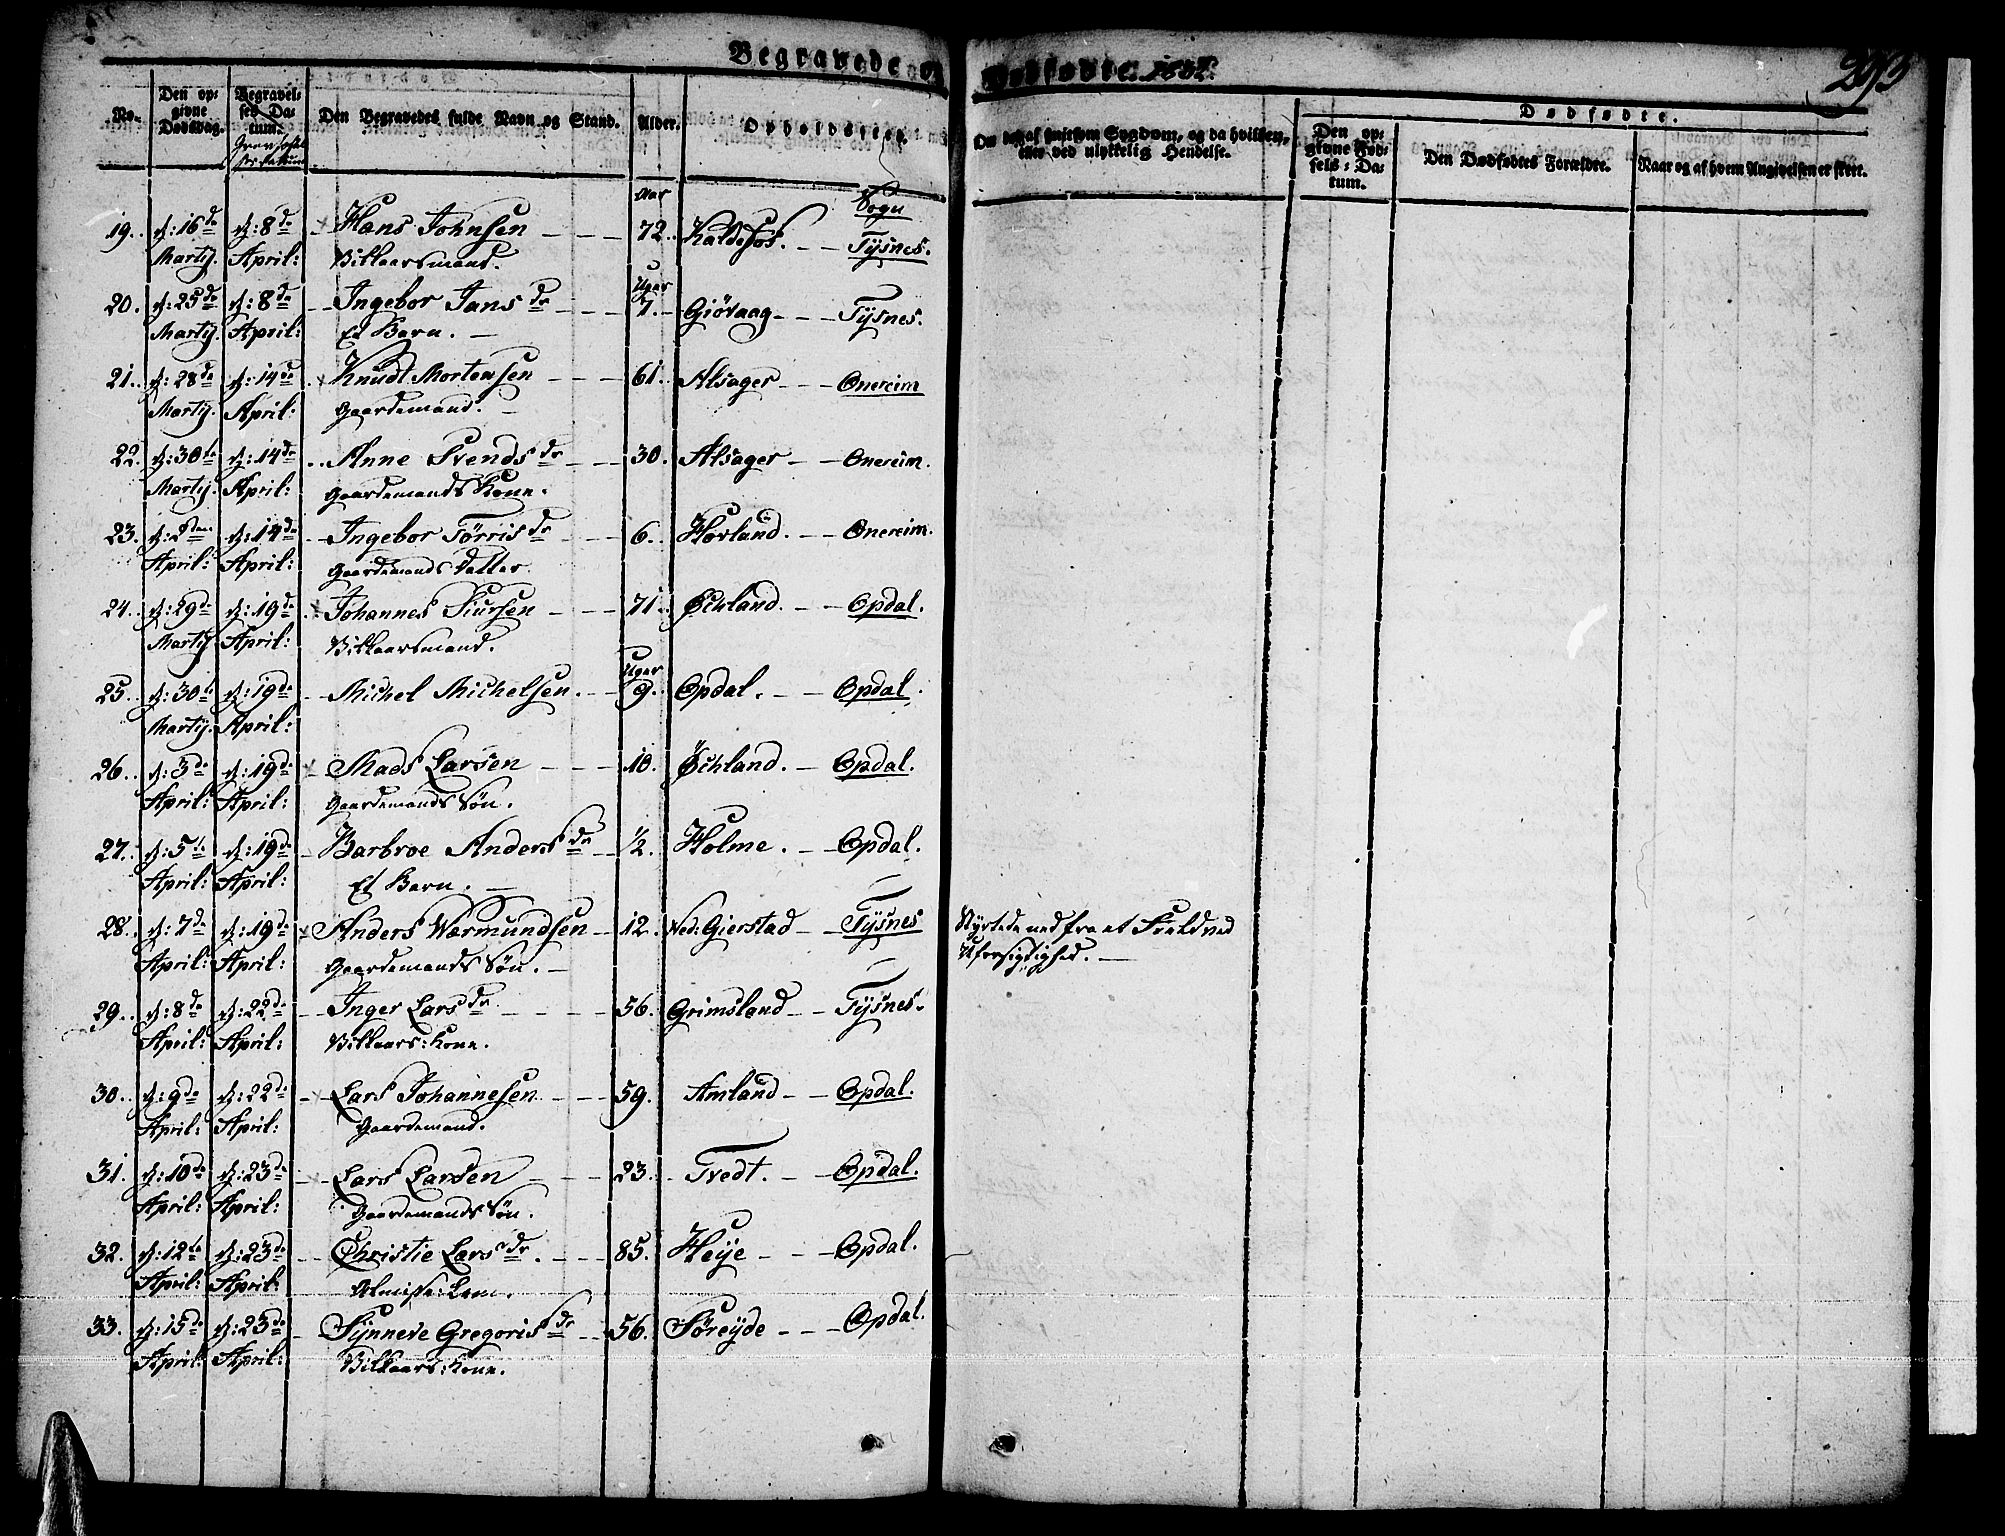 Begravede og Dødfødte. 1837. 293
No.
Den op-
givne
Dødsdag.
Begravel-
ses Da-
tum.
Den Begravedes fulde Navn og Stand.
Alder.
Opholdssted.
Om død af smitsom Sygdom, og da hvilken,
eller ved ulykkelig Hendelse.
Dødfødte.
Den op-
givne Fød-
sels-Da-
tum.
Den Dødfødtes Forældre.
Naar og af hvem Angivelsen er skeet.
Aar Sogn
19. d: 16de d: 8de Hans Johnsen 72. Kaldefos. Tysnes.
Martij. April: Vilkaarsmand.
Uger
20. d: 25de d: 8de Ingebor Jans dr 7. Giövaag Tysnes.
Martij. April: Et Barn.
21. d: 28de d: 14de Knudt Mortensen 61. Alsager Onereim
Martij. April: Gaardemand.
22. d: 30te d: 14de Anne Svends dr 30. Alsager Onereim.
Martij. April: Gaardemands Kone.
23. d: 2den d: 14de Ingebor Tørris dr 6. Hovland. Onereim.
April: April: Gaardemands Datter.
24. d: 29de d: 19de Johannes Siursen 71. Øchland. Opdal.
Martij. April: Vilkaarsmand.
Uger
25. d: 30te d: 19de Michel Michelsen. 9. Opdal. Opdal.
Martij. April:
26. d: 3de d: 19de Mads Larsen 10. Øchland. Opdal.
April: April: Gaardemands Søn.
27. d: 5te d: 19de Barbroe Anders dr 1/2. Holme. Opdal.
April: April: Et Barn.
28. d: 7de d: 19de Anders Wærmundsen 12. Ned: Gierstad Tysnes Styrtede ned fra et Field ved
April: April: Gaardemands Søn. Uforsigtighed.
29. d: 8de d: 22de Inger Lars dr 56. Grimsland Tysnes.
April: April: Vilkaars: Kone.
30. d: 9de d: 22de Lars Johannesen 59. Amland Opdal.
April: April: Gaardemand.
31. d: 10de d: 23de Lars Larsen 23. Tvedt. Opdal.
April: April: Gaardemands Søn.
32. d: 12te d: 23de Christie Lars dr. 85. Heye Opdal.
April: April: Almisse: Lem.
33. d: 15de d: 23de Synneve Gregoris dr 56. Søreyde Opdal.
April: April: Vilkaars: Kone.